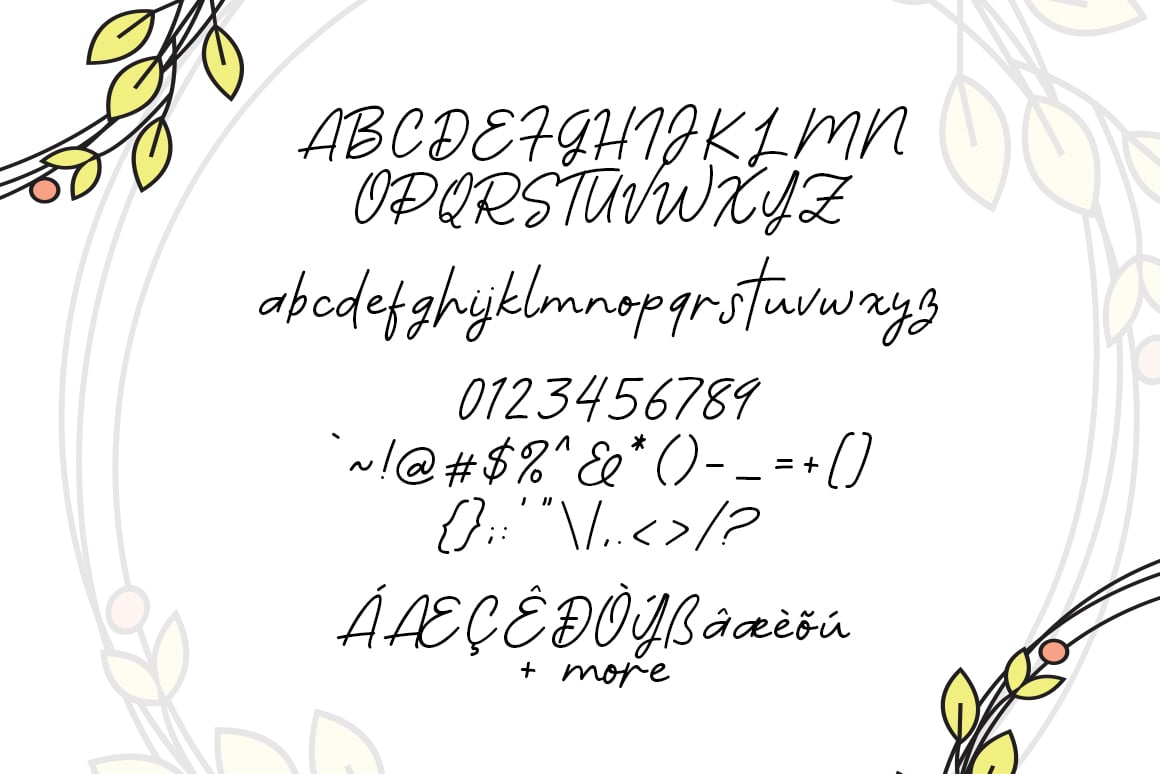 ABCDEFGHIJKLMN
OPQRSTUVWXYZ
abcdefghijklmnopqrstuvwxyz
0123456789
`~!@#$%^&*()-_=+[]
{};:'"\|,.<>/?
ÁÆÇÊÐÒÝßâæèõú
+ more